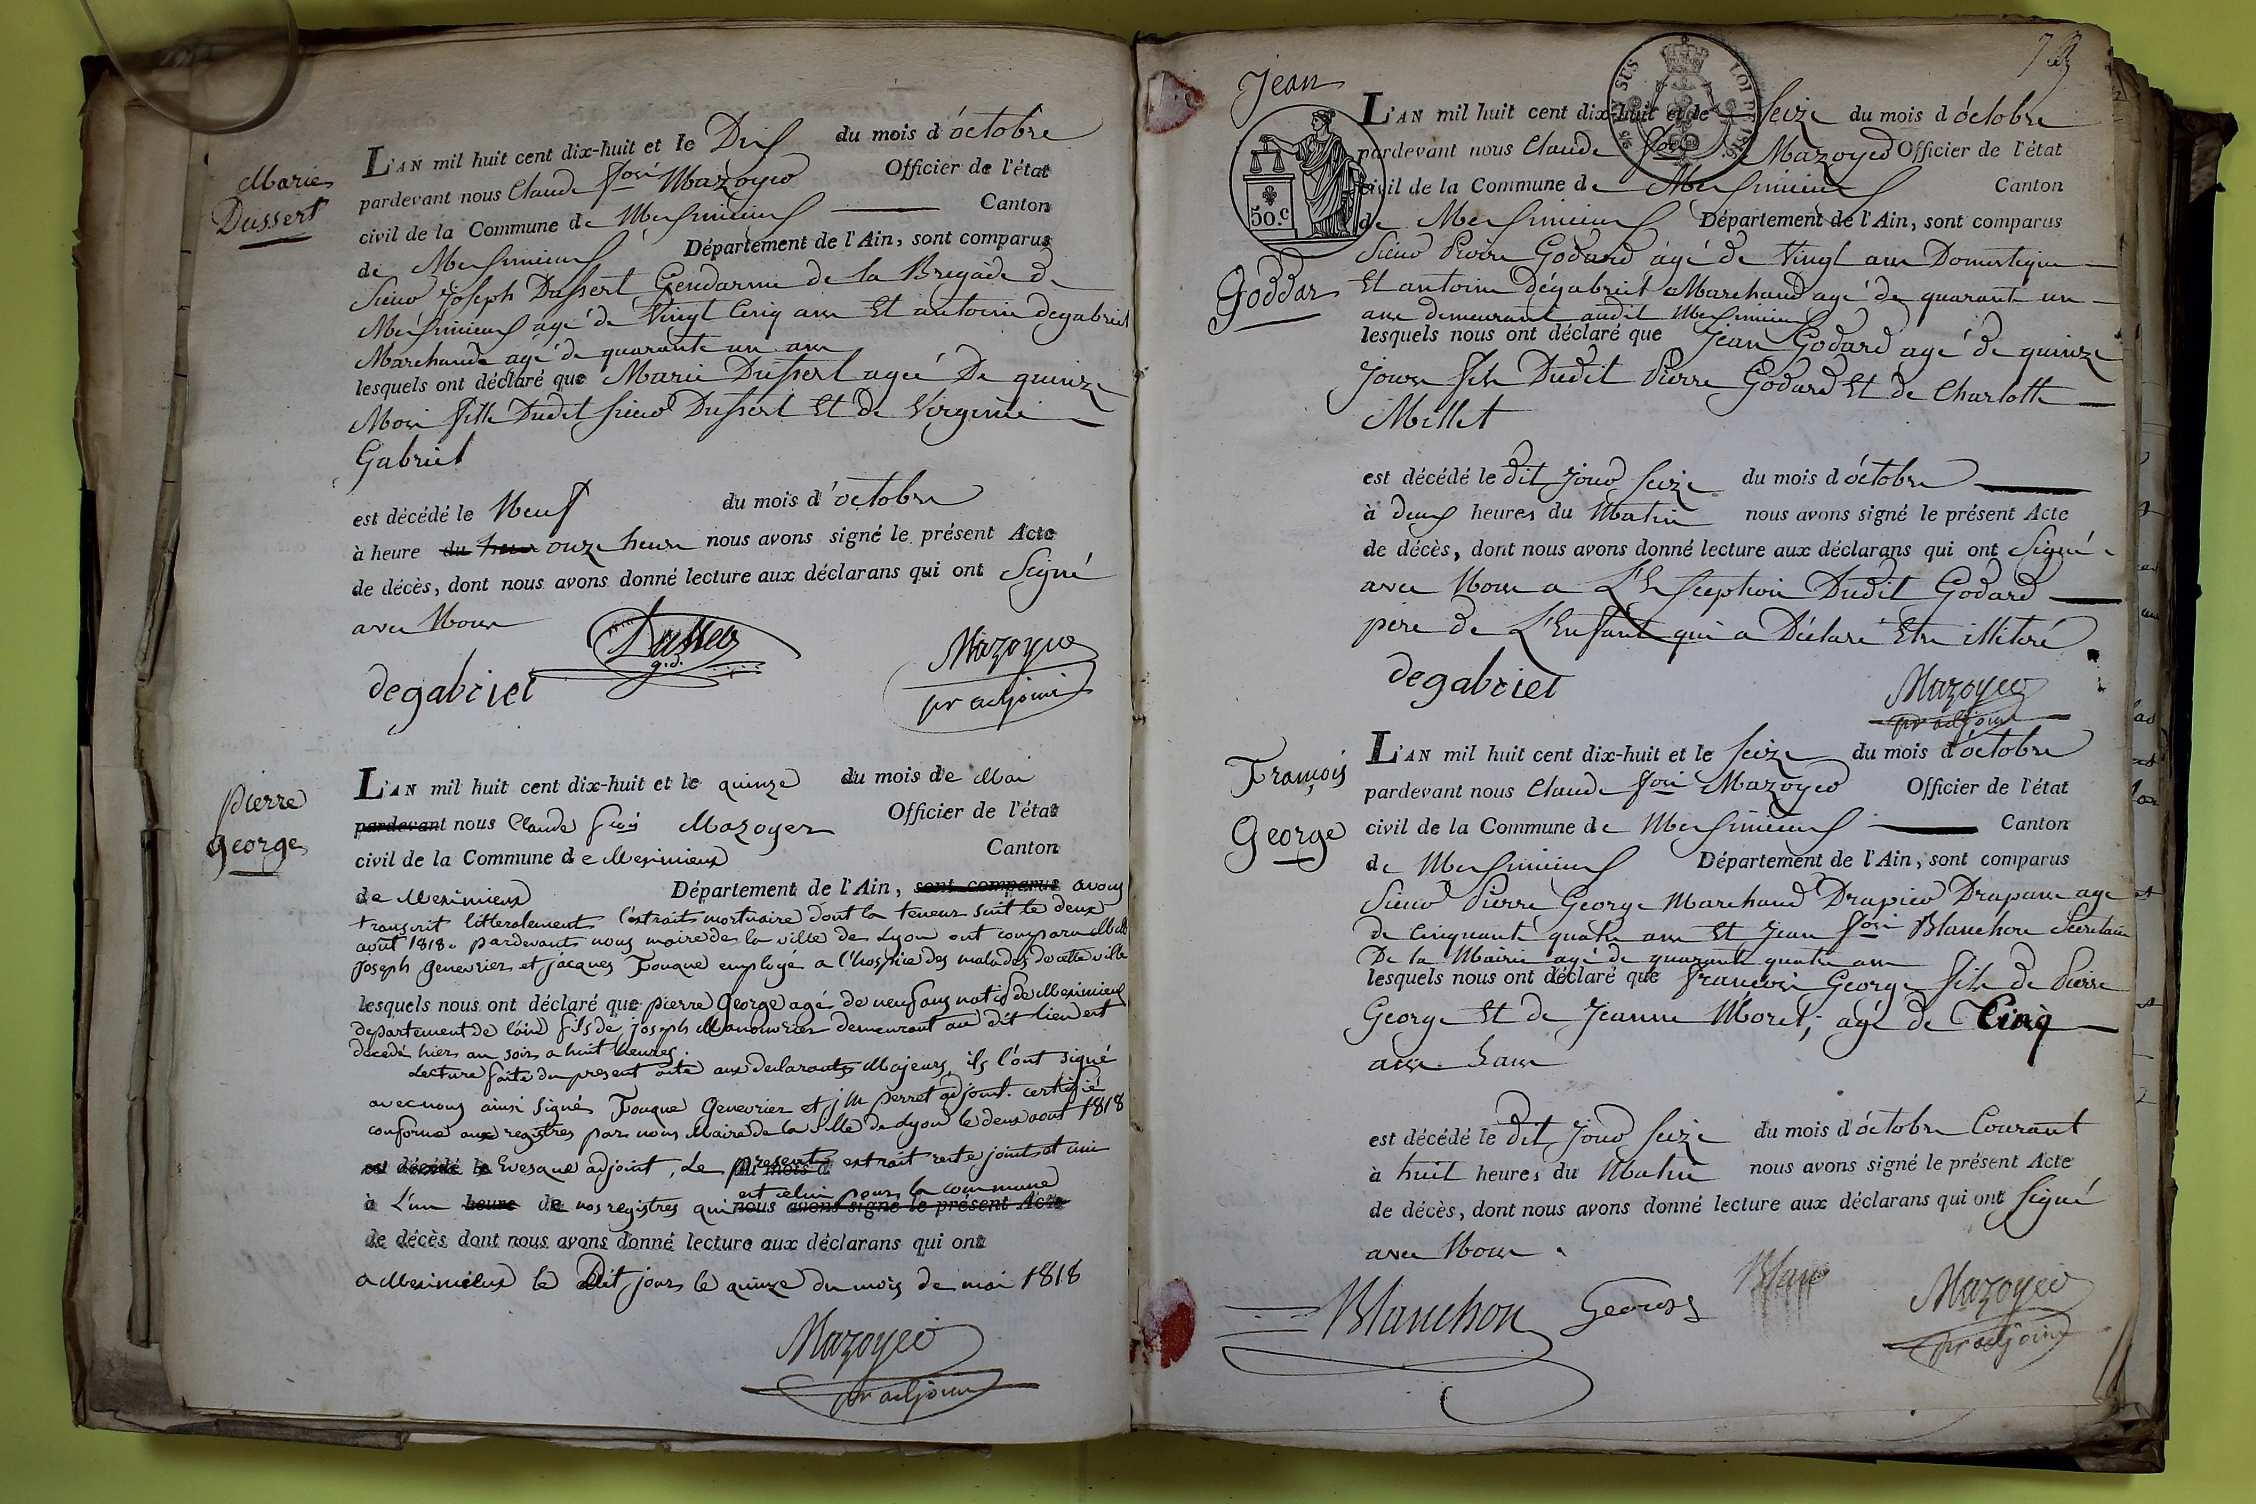 Marie
Dussert
L'AN mil huit cent dix-huit et le Dix du mois d'octobre
pardevant nous Claude fçois Mazoyer Officier de l'état
civil de la Commune de Meximieux Canton
de Meximieux Département de l'Ain, sont comparus
Sieur Joseph Dussert Gendarme de la Brigade de
Meximieux agé de Vingt Cinq ans Et antoine degabriel
Marchand agé de quarante un ans
lesquels ont déclaré que Marie Dussert ageé De quinze
Mois fille Dudit sieur Dussert Et de Virginie
Gabriel
est décédé le Neuf du mois d'octobre
à heure du onze heure nous avons signé le présent Acte
de décès, dont nous avons donné lecture aux déclarans qui ont Signé
avec Nous
Dussert
g.d.
degabriel
Mazoyer
pr adjoint
Pierre
George
L'AN mil huit cent dix-huit et le quinze du mois de Mai
pardevant nous Claude fçois Mazoyer Officier de l'état
civil de la Commune de Meximieux Canton
de Meximieux Département de l'Ain, sont comparus avons
transcrit litteralement l'extrait mortuaire dont la teneur suit le deux
août 1818. pardevant nous maire de la ville de Lyon ont comparu
Joseph Genevrier et jacques Fouque employé a l'hospice des malades de cette ville
lesquels nous ont déclaré que pierre George agé de neuf ans natif de Meximieux
departement de l'ain fils de joseph Manouvrier demeurant au dit lieu est
décédé hier au soir a huit heures.
Lecture faite du present acte aux declarants Majeurs, ils l'ont signé
avec nous ainsi signé Fouque Genevrier et j m perret adjoint. certifié
conforme aux registres par nous Maire de la Ville de Lyon le deux aout 1818
est décédé le Evesque adjoint, Le present extrait reste joint et uni
du mois d
est celui pour la commune
à L'un heure de nos registres qui nous avons signé le présent Acte
de décès dont nous avons donné lecture aux déclarans qui ont
a Meximieux le Dit jour le quinze du mois de mai 1818
Mazoyer
pr adjoint
Jean
50.c
Goddar
L'AN mil huit cent dix-huit et le Seize du mois d'octobre
pardevant nous Claude fçois Mazoyer Officier de l'état
civil de la Commune de Meximieux Canton
de Meximieux Département de l'Ain, sont comparus
Sieur Pierre Godard agé de Vingt ans Domestique
Et antoine dégabriel Marchand agé de quarante un
ans demeurant audit Meximieux
lesquels nous ont déclaré que Jean Godard agé de quinze
Jours fils Dudit Pierre Godard Et de Charlotte
Millet
est décédé le dit Jour Seize du mois d'octobre
à deux heures du Matin nous avons signé le présent Acte
de décès, dont nous avons donné lecture aux déclarans qui ont Signé
avec Nous a L'Exception Dudit Godard
pere de L'Enfant qui a Déclaré Etre illiteré
degabriel
Mazoyer
pr adjoint
François
George
L'AN mil huit cent dix-huit et le Seize du mois d'octobre
pardevant nous Claude fçois Mazoyer Officier de l'état
civil de la Commune de Meximieux Canton
de Meximieux Département de l'Ain, sont comparus
Sieur Pierre George Marchand Drapier Drapeau age
de Cinquante quatre ans Et Jean fçois Blanchon Secretaire
De la Mairie agé de quarante quatre ans
lesquels nous ont déclaré que francois George fils de Pierre
George Et de Jeanne Moret, agé de Cinq
ans
est décédé le dit Jour Seize du mois d'octobre Courant
à huit heures du Matin nous avons signé le présent Acte
de décès, dont nous avons donné lecture aux déclarans qui ont Signé
avec Nous.
Blanchon George Blan
Mazoyer
pr adjoint